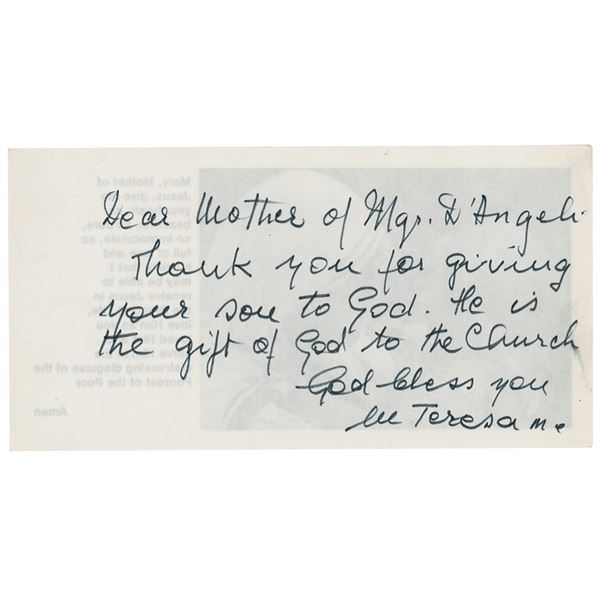 Dear Mother of Mgr. D'Angeli.
Thank you for giving
your son to God. He is
the gift of God to the Church
God bless you
M Teresa m.c
Mary, Mother of
Jesus, give
so immaculate, so
full of and
that I
may be able to
receive Jesus in
love Him as you
distressing disguise of the
Poorest of the Poor
Amen